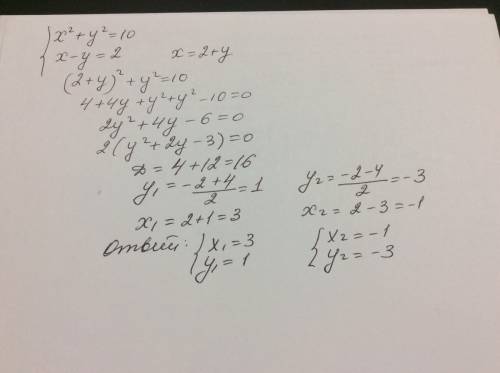 { x² + y² = 10
x - y = 2    x = 2 + y
(2 + y)² + y² = 10
4 + 4y + y² + y² - 10 = 0
2y² + 4y - 6 = 0
2(y² + 2y - 3) = 0
D = 4 + 12 = 16
y₁ = (-2 + 4)/2 = 1    y₂ = (-2 - 4)/2 = -3
x₁ = 2 + 1 = 3    x₂ = 2 - 3 = -1
Ответ: { x₁ = 3    { x₂ = -1
y₁ = 1    y₂ = -3